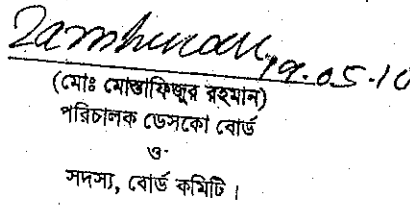 19-05-10
(মোঃ মোস্তাফিজুর রহমান)
পরিচালক ডেসকো বোর্ড
ও
সদস্য, বোর্ড কমিটি।